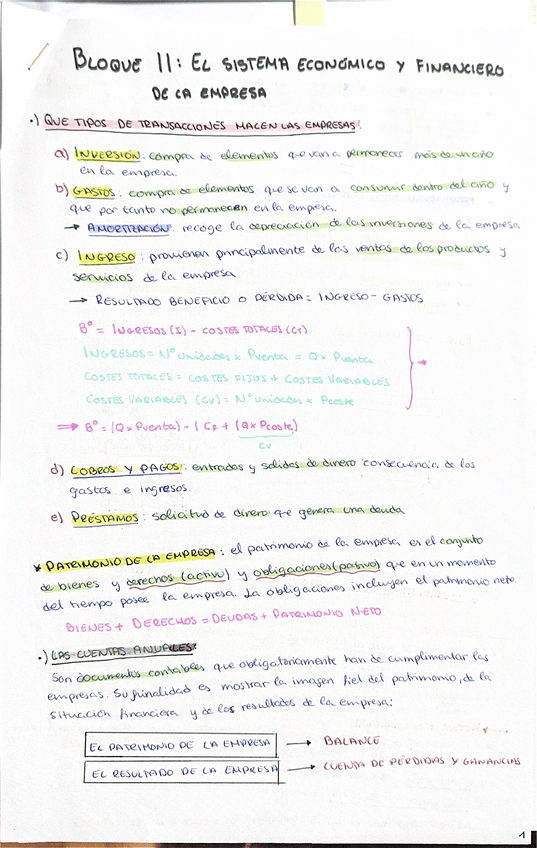 BLOQUE II: EL SISTEMA ECONÓMICO Y FINANCIERO
DE LA EMPRESA
•) QUE TIPOS DE TRANSACCIONES HACEN LAS EMPRESAS:
a) INVERSIÓN: compra de elementos que van a permanecer más de un año
en la empresa.
b) GASTOS: compra de elementos que se van a consumir dentro del año y
que por tanto no permanecen en la empresa.
→ AMORTIZACIÓN: recoge la depreciación de las inversiones de la empresa
c) INGRESO: provienen principalmente de las ventas de los productos y
servicios de la empresa
→ RESULTADO BENEFICIO O PÉRDIDA = INGRESO - GASTOS
Bº = INGRESOS (I) - COSTES TOTALES (CT)
INGRESOS = Nº unidades x Pventa = Q x Pventa
COSTES TOTALES = COSTES FIJOS + COSTES VARIABLES
COSTES VARIABLES (CV) = Nº unidades x Pcoste
⇒ Bº = (Q x Pventa) - (CF + (Q x Pcoste)
CV
d) COBROS Y PAGOS: entradas y salidas de dinero consecuencia de los
gastos e ingresos.
e) PRÉSTAMOS: solicitud de dinero que genera una deuda
* PATRIMONIO DE LA EMPRESA: el patrimonio de la empresa es el conjunto
de bienes y derechos (activo) y obligaciones (pasivo) que en un momento
del tiempo posee la empresa. La obligaciones incluyen el patrimonio neto.
BIENES + DERECHOS = DEUDAS + PATRIMONIO NETO
•) LAS CUENTAS ANUALES:
Son documentos contables que obligatoriamente han de cumplimentar las
empresas. Su finalidad es mostrar la imagen fiel del patrimonio, de la
situación financiera y de los resultados de la empresa:
EL PATRIMONIO DE LA EMPRESA → BALANCE
EL RESULTADO DE LA EMPRESA → CUENTA DE PÉRDIDAS Y GANANCIAS
1